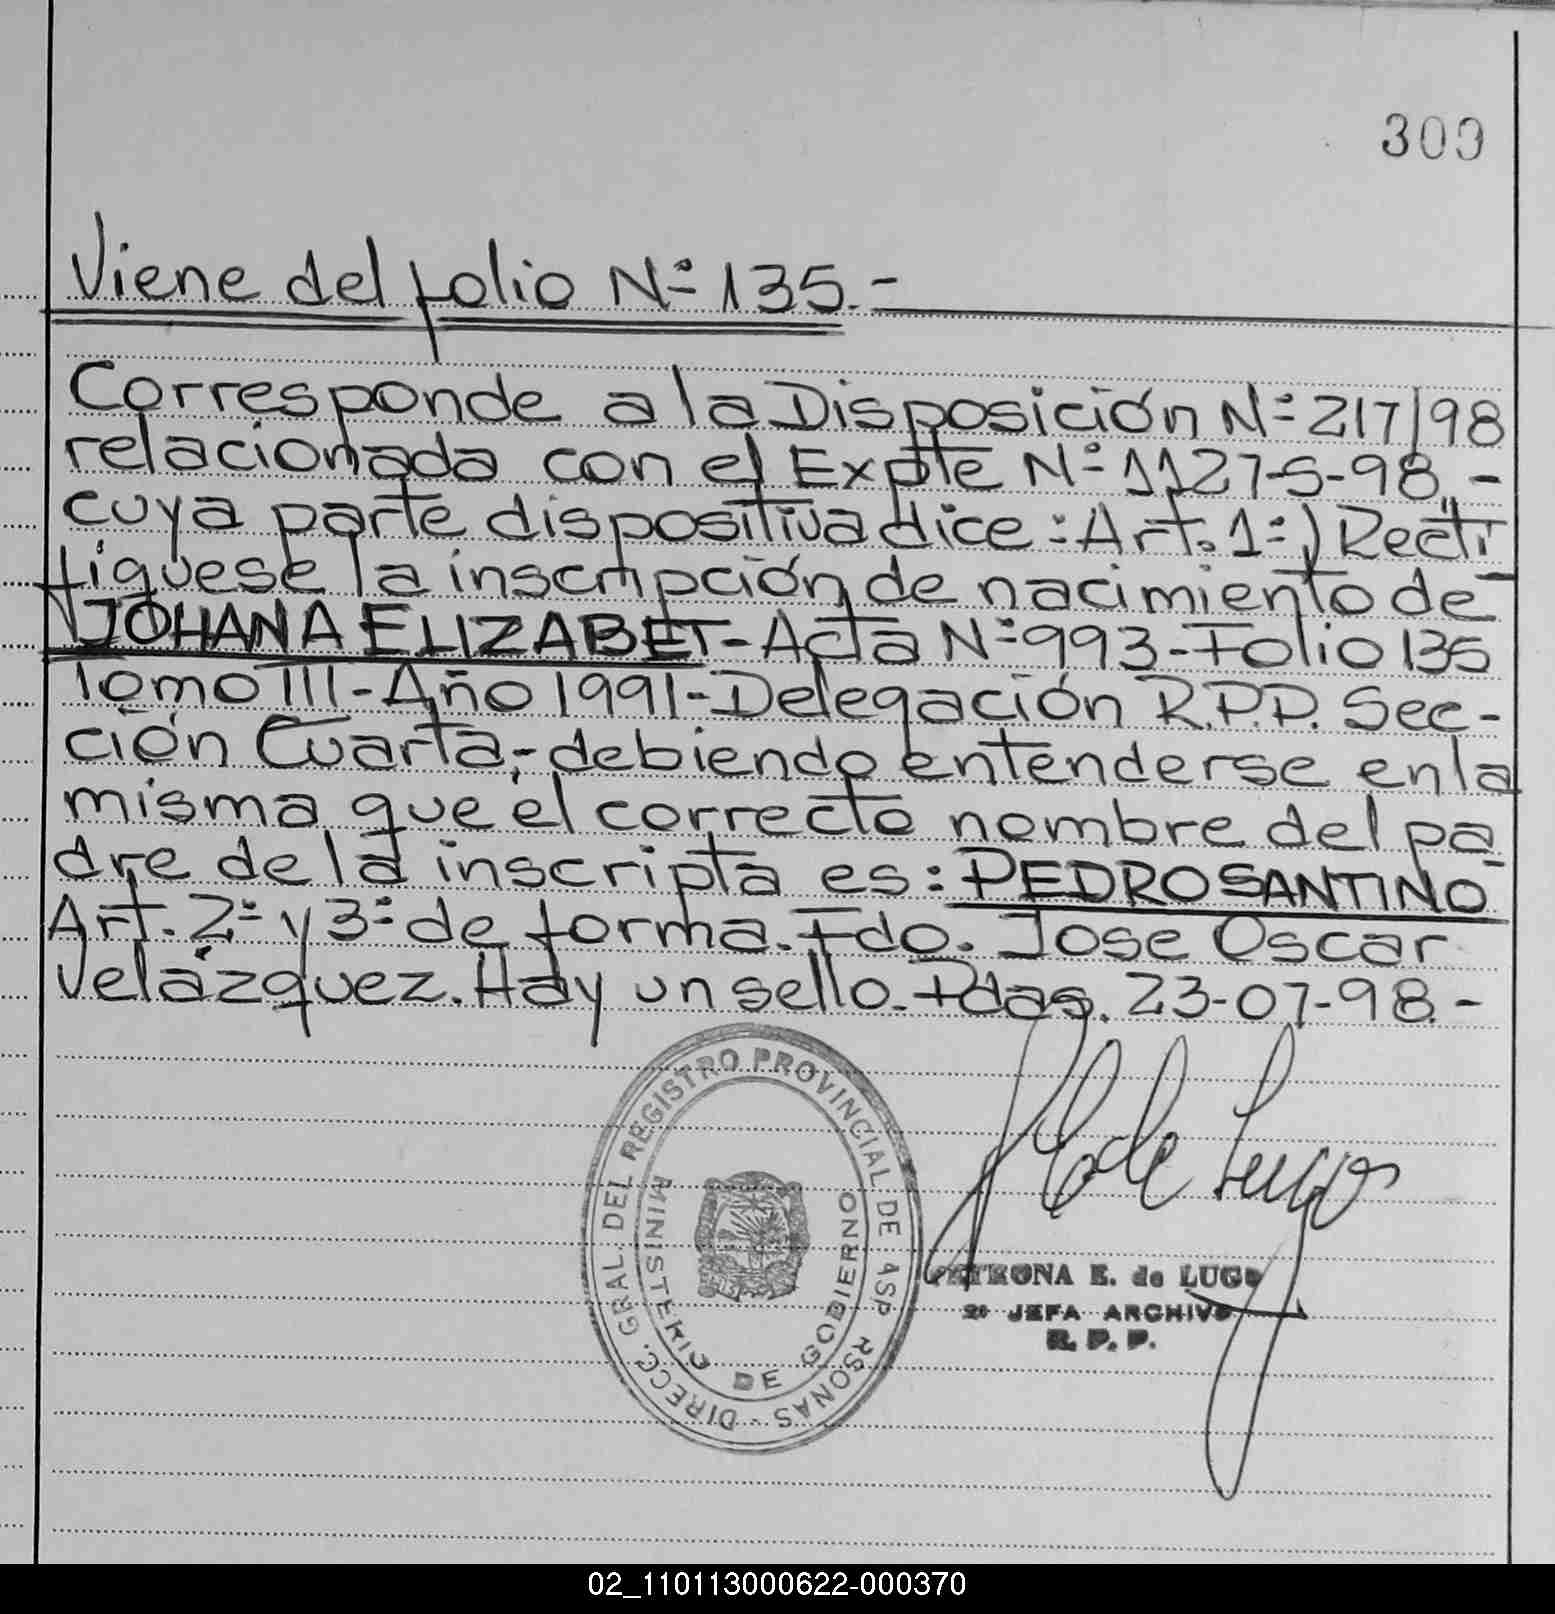 300
Viene del folio Nº 135.-
Corresponde a la Disposición Nº 217/98
relacionada con el Expte Nº 1127-S-98.-
cuya parte dispositiva dice: Art. 1º) Recti
fiquese la inscripción de nacimiento de
JOHANA ELIZABET - Acta Nº 993 - Folio 135
Tomo III - Año 1991 - Delegación R.P.P. Sec-
ción Cuarta; debiendo entenderse en la
misma que el correcto nombre del pa-
dre de la inscripta es: PEDRO SANTINO
Art. 2º y 3º de forma. Fdo. Jose Oscar
Velázquez. Hay un sello. Pdas. 23-07-98.-
DIRECC. GRAL DEL REGISTRO PROVINCIAL DE LAS PERSONAS -
MINISTERIO DE GOBIERNO
de Lugo
PETRONA E. de LUGO
2º JEFA ARCHIVO
R. P. P.
02_110113000622-000370